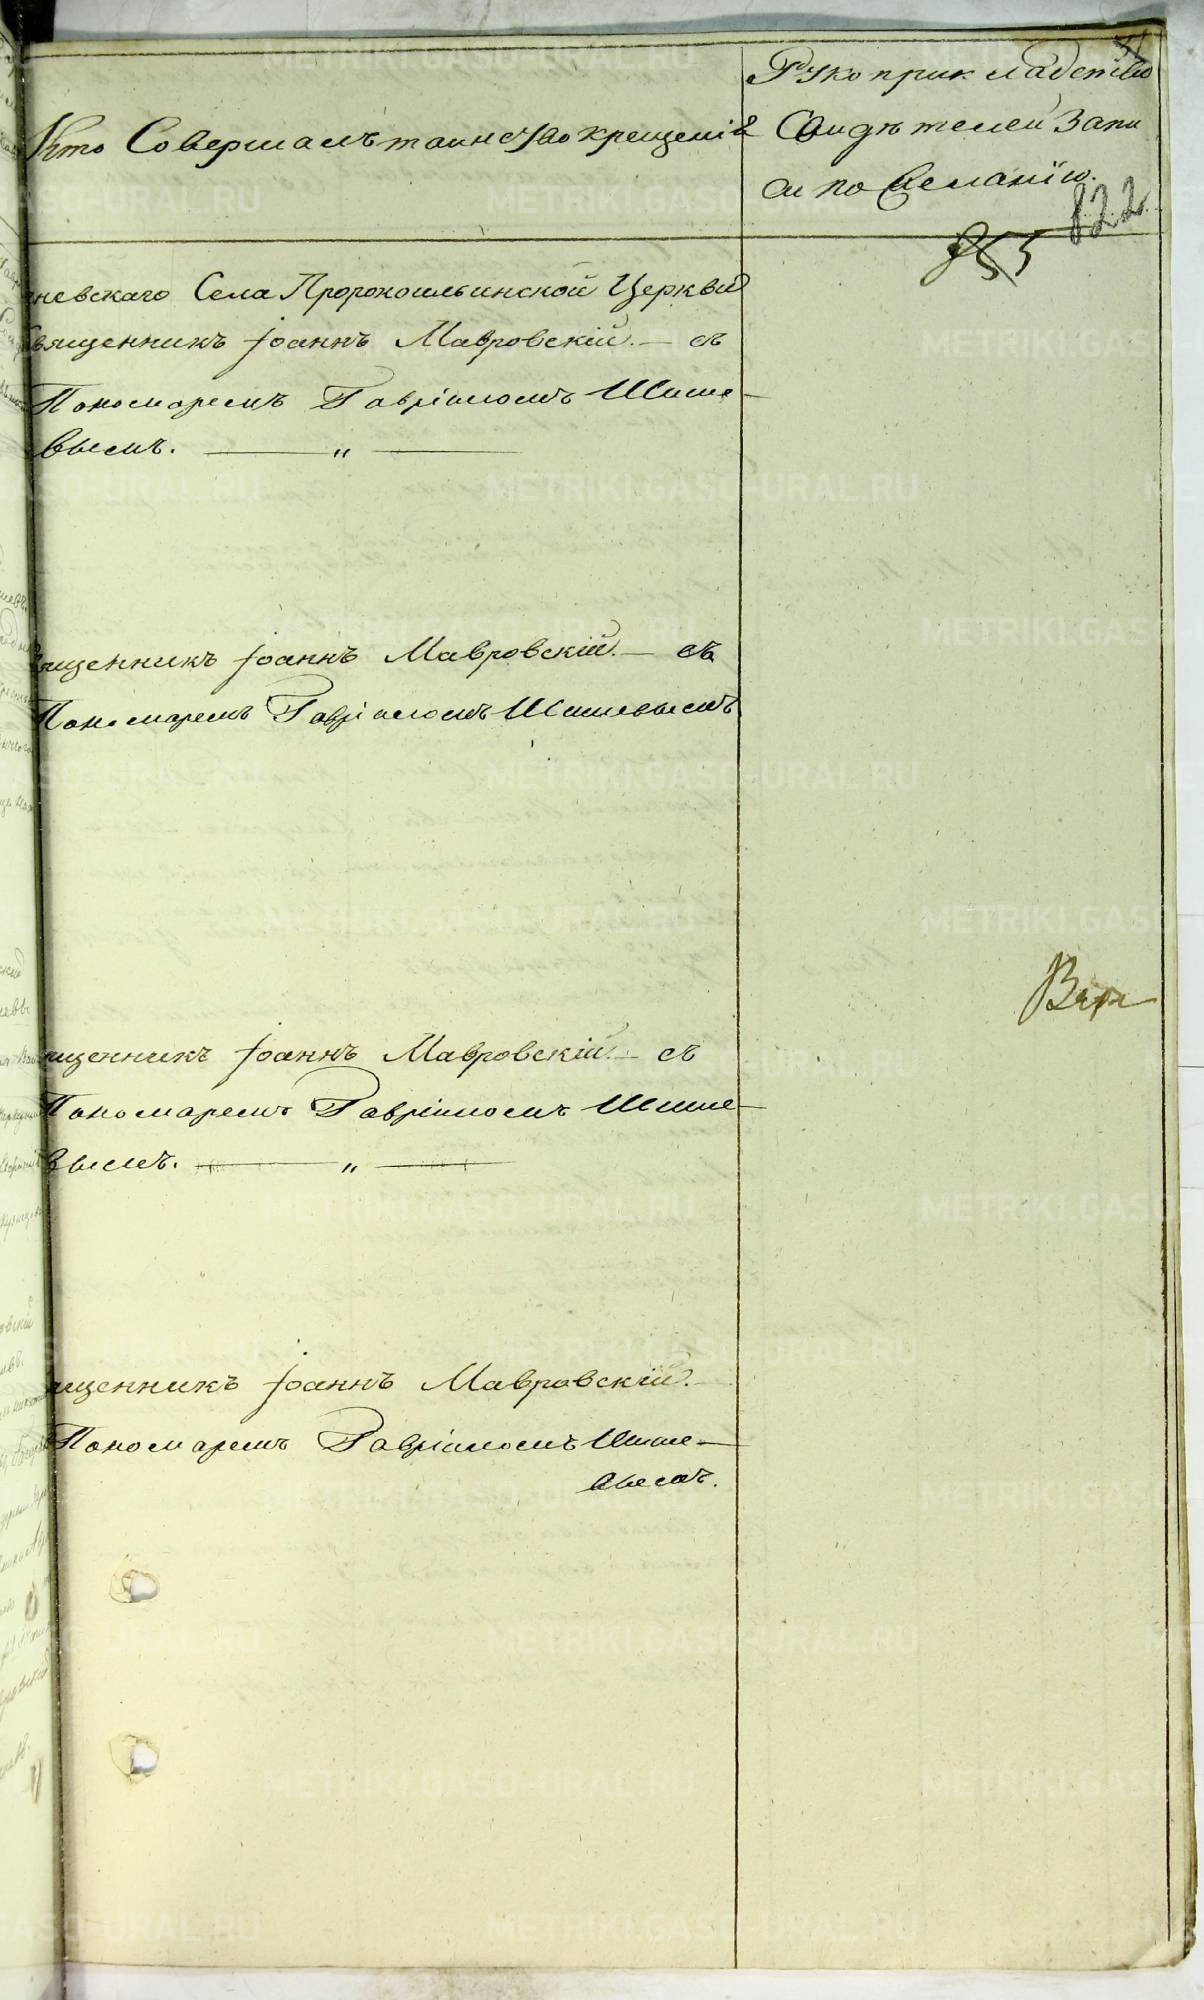 Рукоприкладство
Кто Совершалъ таинство крещенія
Свидѣтелей Запи
си по Желанію.
822
855
невскаго Села Пророкоильинской Церкви
Священникъ Іоаннъ Мавровскій. — съ
Пономаремъ Гавріиломъ Шише-
вымъ. — „ —
ященникъ Іоаннъ Мавровскій. — съ
Пономаремъ Гавріиломъ Шишевымъ
ященникъ Іоаннъ Мавровскій. — съ
Пономаремъ Гавріиломъ Шише-
вымъ. — „ —
ященникъ Іоаннъ Мавровскій.
Пономаремъ Гавріиломъ Шише-
вымъ.
METRIKI.GASO-URAL.RU